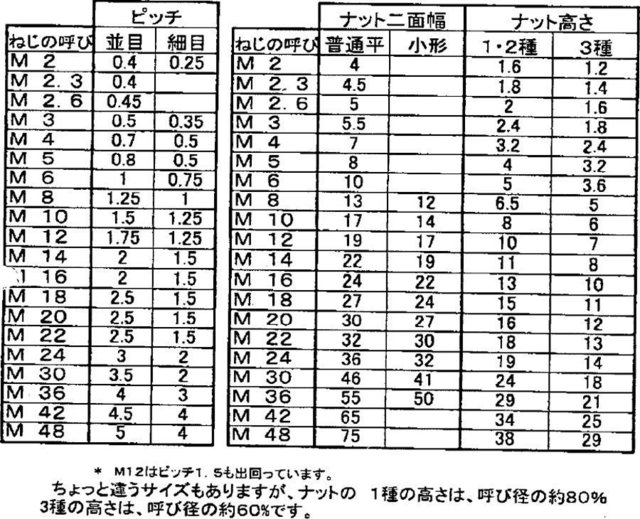 ピッチ
ねじの呼び 並目 細目
M 2 0.4 0.25
M 2.3 0.4
M 2.6 0.45
M 3 0.5 0.35
M 4 0.7 0.5
M 5 0.8 0.5
M 6 1 0.75
M 8 1.25 1
M 10 1.5 1.25
M 12 1.75 1.25
M 14 2 1.5
16 2 1.5
M 18 2.5 1.5
M 20 2.5 1.5
M 22 2.5 1.5
M 24 3 2
M 30 3.5 2
M 36 4 3
M 42 4.5 4
M 48 5 4
ナット二面幅 ナット高さ
ねじの呼び 普通平 小形 1・2種 3種
M 2 4 1.6 1.2
M 2.3 4.5 1.8 1.4
M 2.6 5 2 1.6
M 3 5.5 2.4 1.8
M 4 7 3.2 2.4
M 5 8 4 3.2
M 6 10 5 3.6
M 8 13 12 6.5 5
M 10 17 14 8 6
M 12 19 17 10 7
M 14 22 19 11 8
M 16 24 22 13 10
M 18 27 24 15 11
M 20 30 27 16 12
M 22 32 30 18 13
M 24 36 32 19 14
M 30 46 41 24 18
M 36 55 50 29 21
M 42 65 34 25
M 48 75 38 29
* M12はピッチ1.5も出回っています。
ちょっと違うサイズもありますが、ナットの 1種の高さは、呼び径の約80%
3種の高さは、呼び径の約60%です。